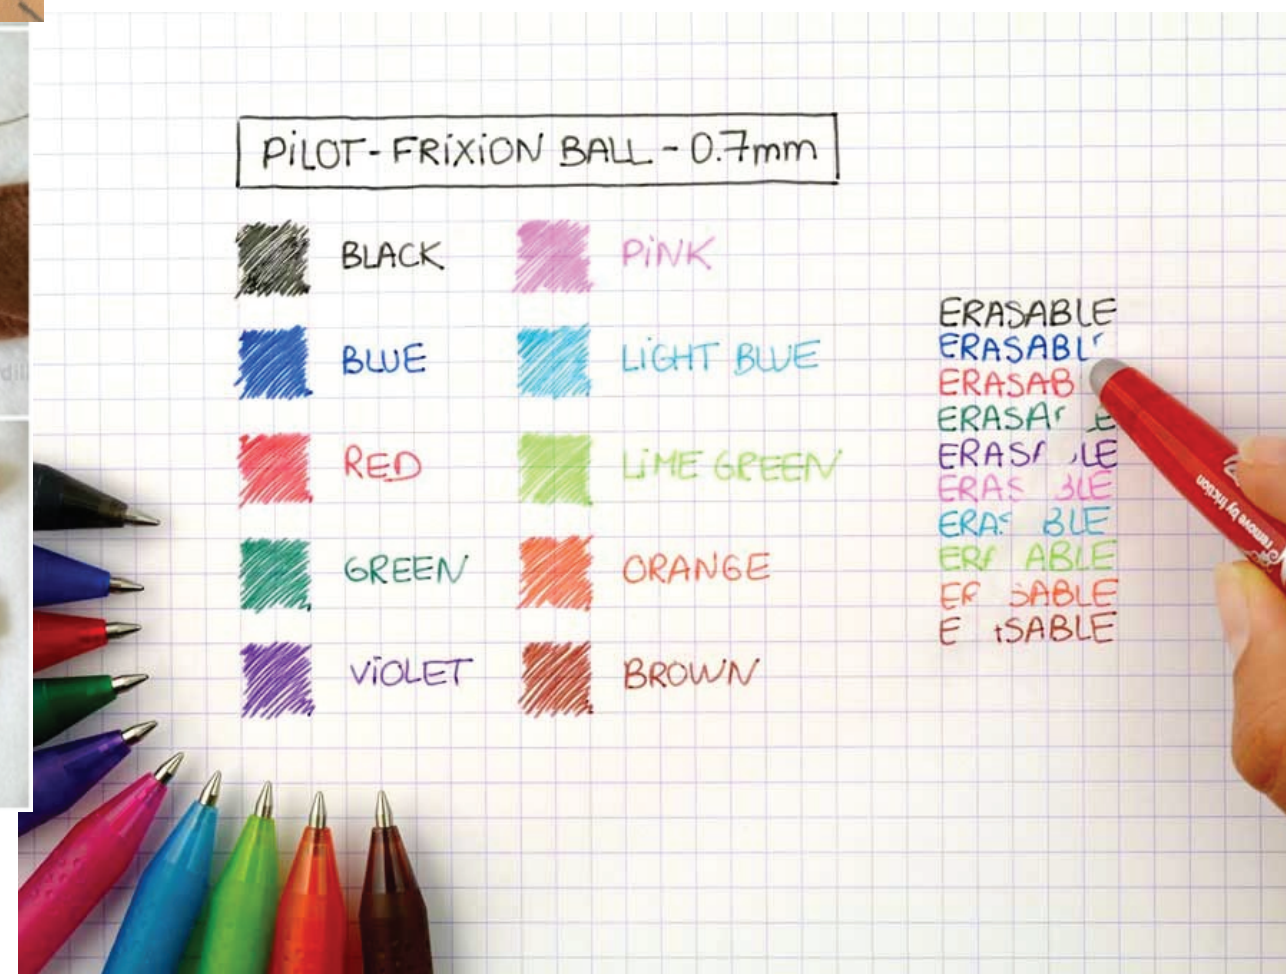 PiLOT - FRiXiON BALL - 0.7mm
BLACK
BLUE
RED
GREEN
ViOLET
PiNK
LiGHT BLUE
LiME GREEN
ORANGE
BROWN
ERASABLE
ERASABL
ERASAB
ERASA E
ERAS LE
ERAS BLE
ERA BLE
ER ABLE
E SABLE
E SABLE
remove by friction